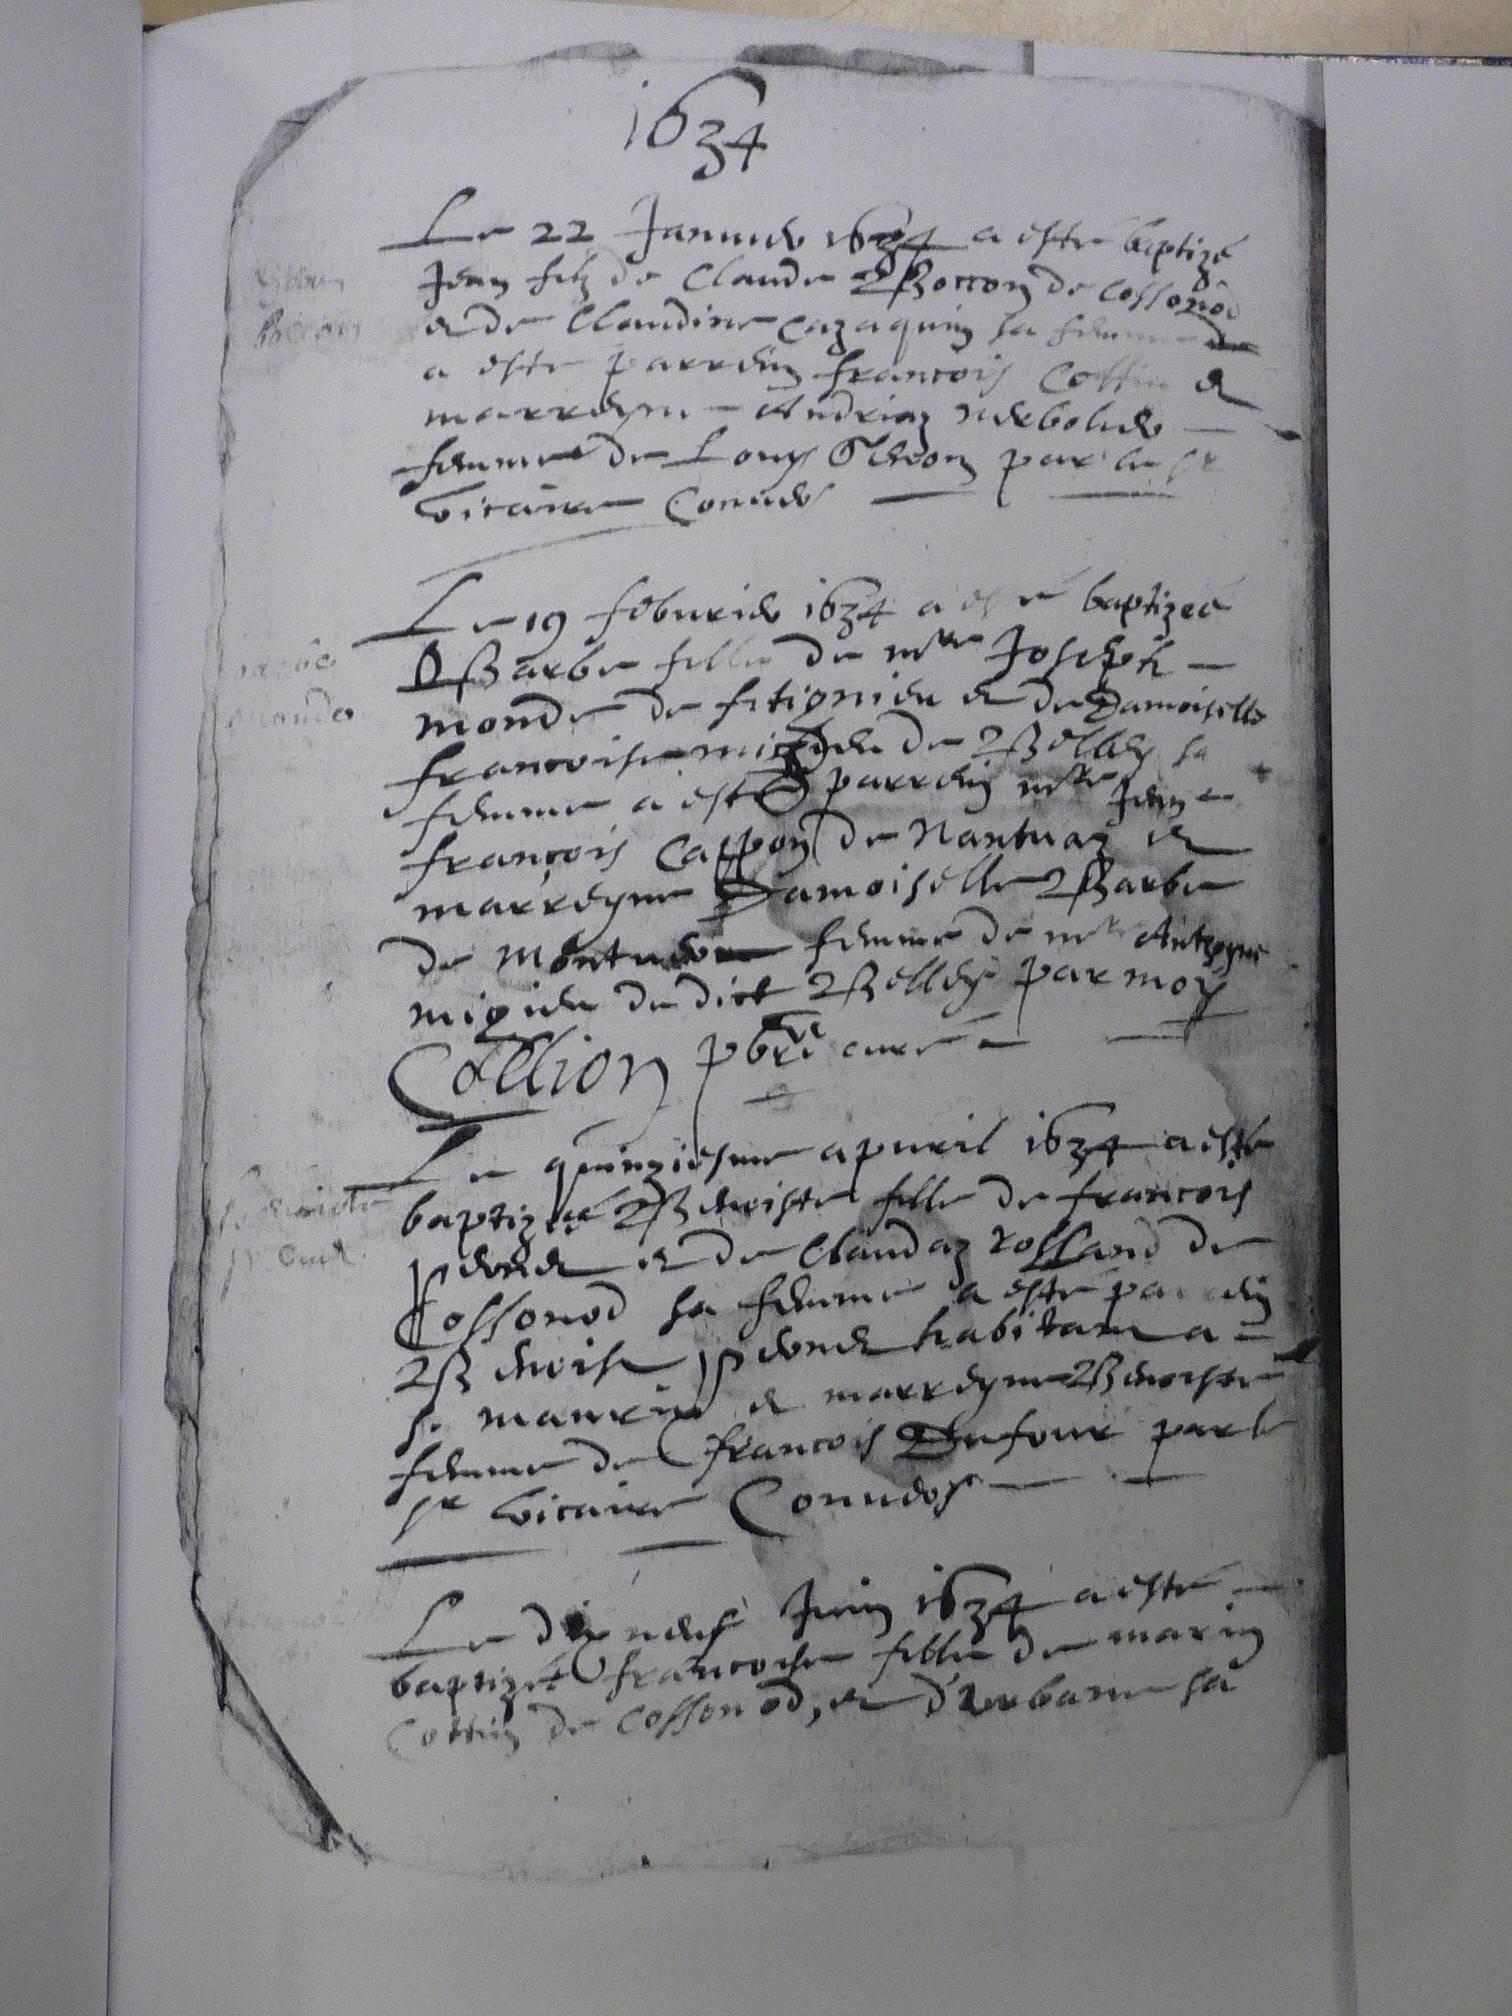 1634
Le 22 Januier 1634 a esté baptizé
Jean filz de Claude Bocton de Cossonod
et de Claudine Cazaquin sa femme
a este parrein francois Cottin et
marreyne Andriaz
femme de Louys par le sr
vicaire Conuers
Le 19 feburier 1634 a esté baptizeé
Barbe fille de mtre Joseph
monde de fitignieu et de Damoiselle
francoise migieu de Belley sa
femme a esté parrein mtre Jean
françois Caspon de Nantuaz et
marreyne Damoiselle Barbe
de femme de mtre Anthoyne
migieu du dict Belley par moy
Collion pbre curé
Le quinziesme apuril 1634 a esté
baptizeé Benoiste fille de francois
peuuet et de Claudaz rolland de
Cossonod sa femme a esté parrein
Benoist peuuet habitant a
s. maurix et marreyne Benoiste
femme de francois Dufour par le
sr vicaire Conuers
Le dix neuf Juin 1634 a esté
baptizeé francoise fille de marin
Cottin de Cossonod, et d'urbane sa
Barbe
Monde
Benoiste